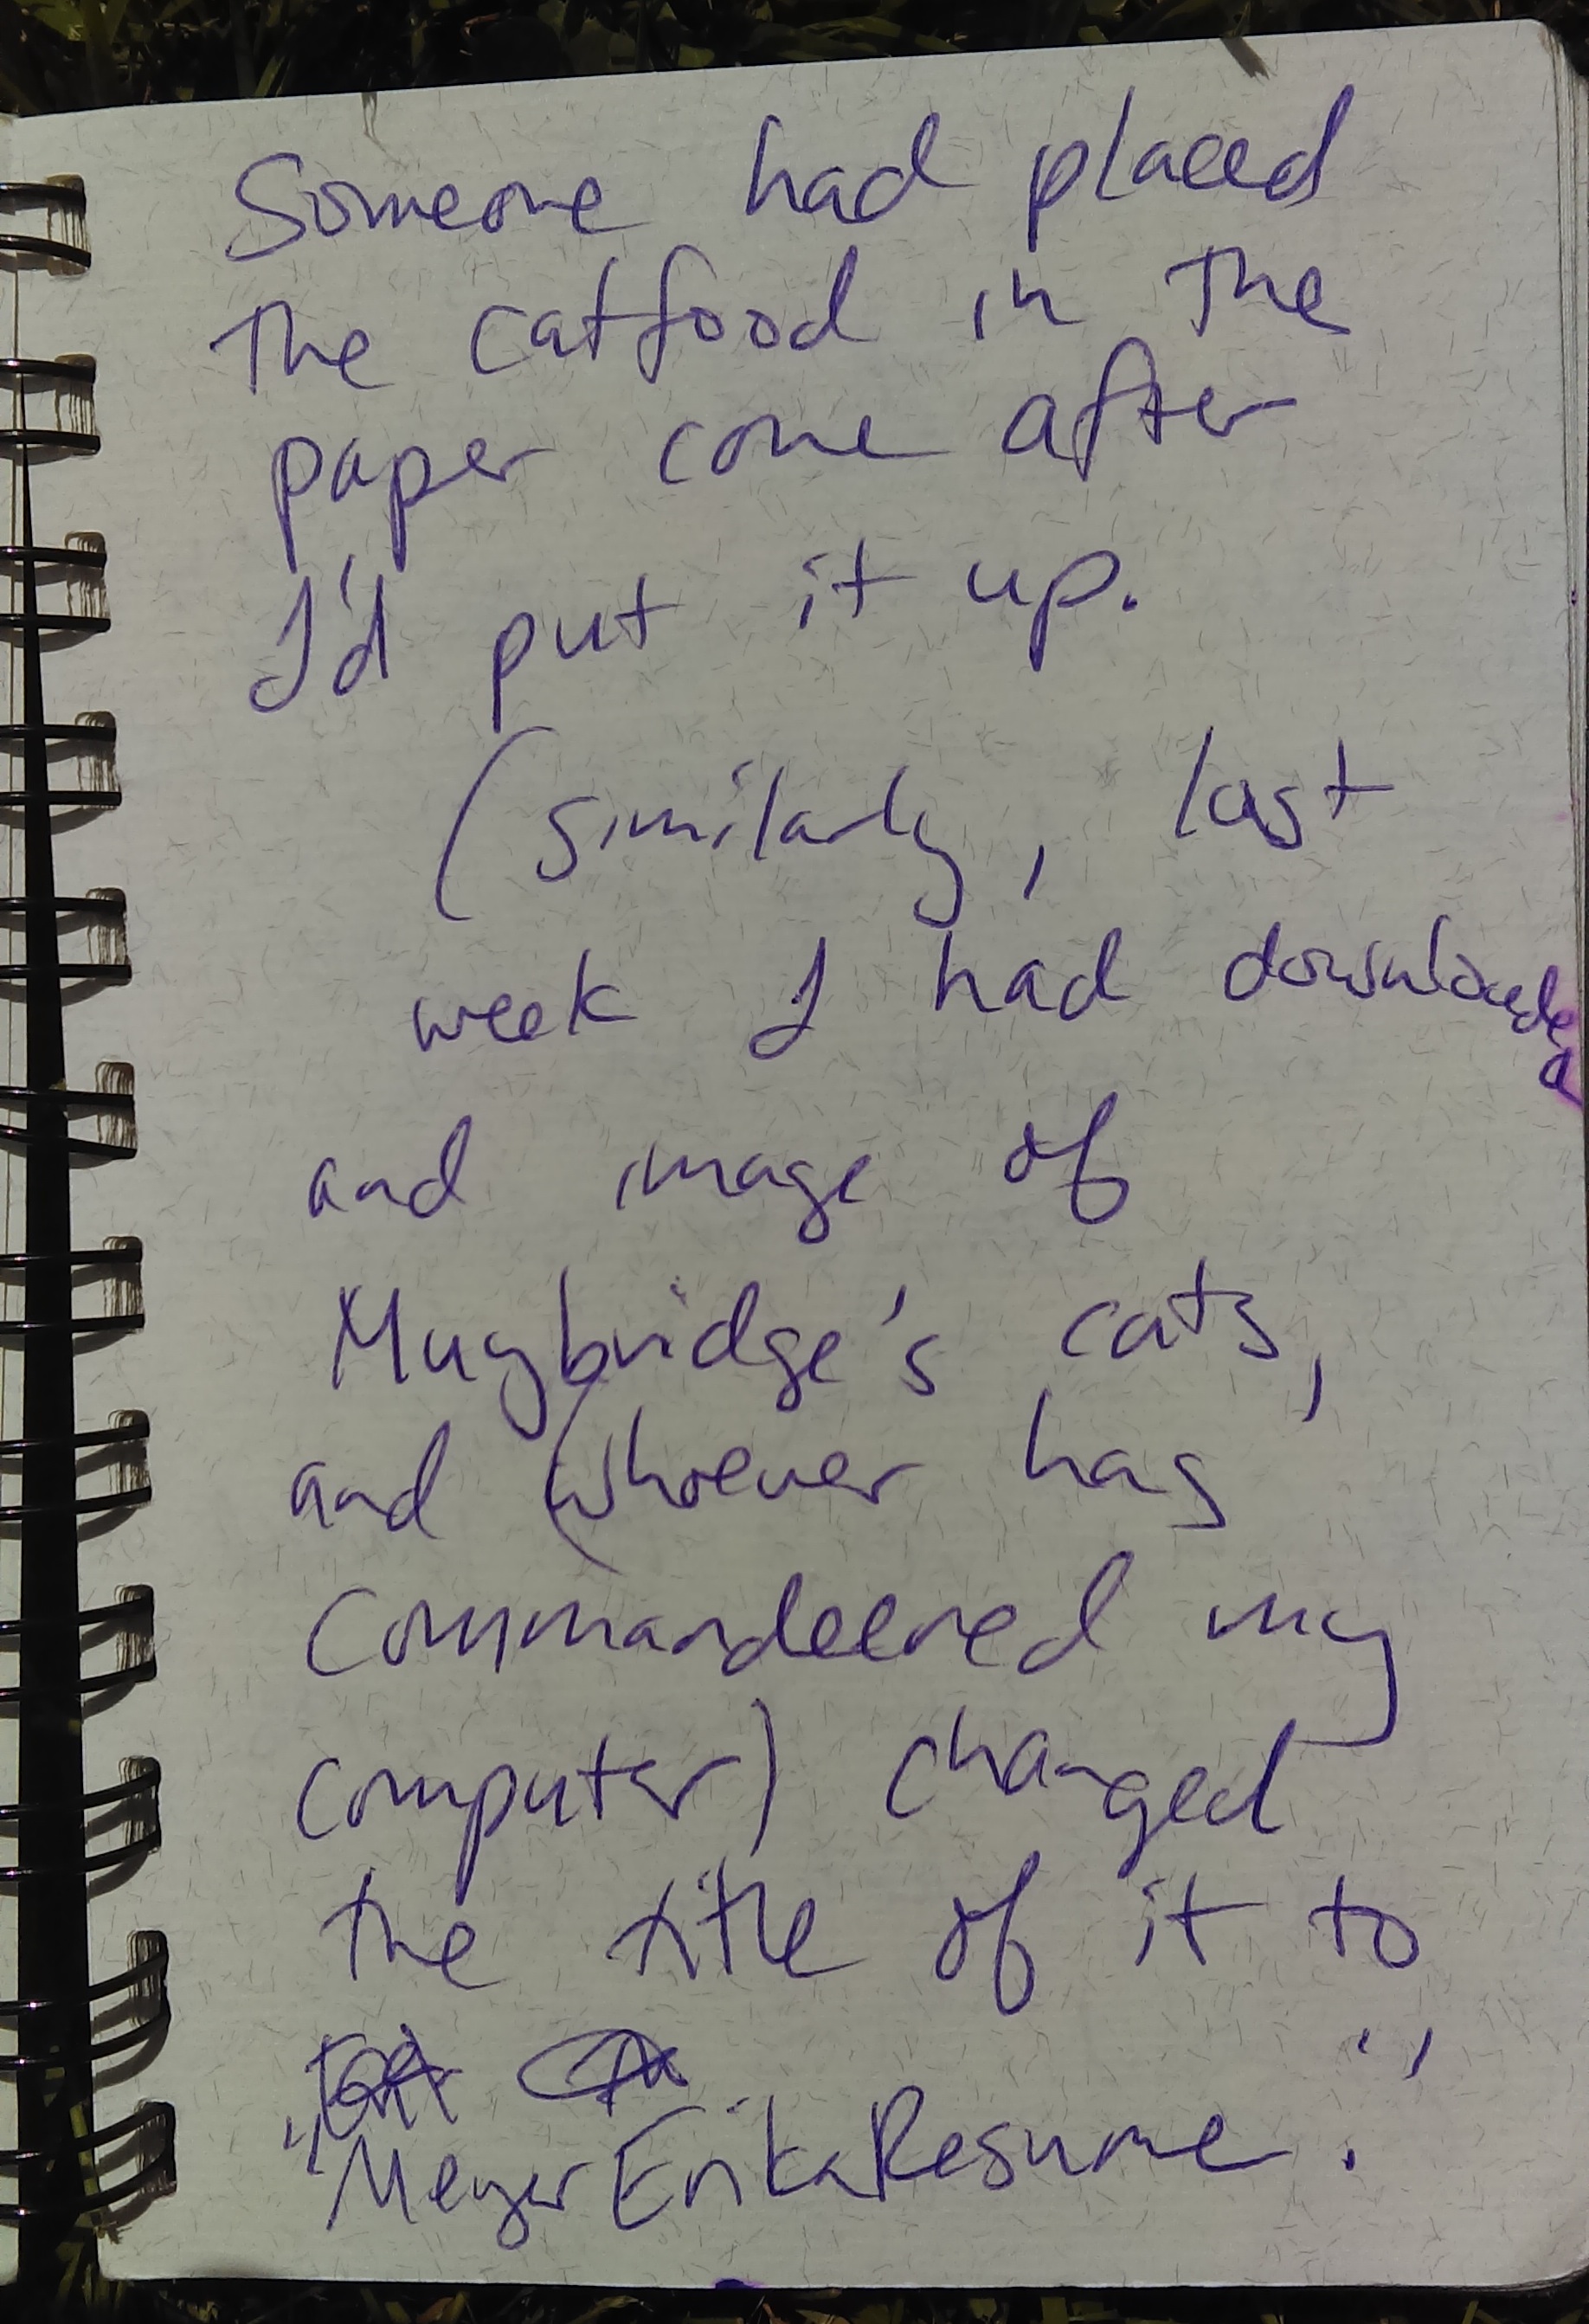 Someone had placed
the catfood in the
paper cone after
I'd put it up.
(similarly, last
week I had downloaded
and image of
Muybridge's cats,
and (whoever has
commandeered my
computer) changed
the title of it to
"MeyerErikaResume."